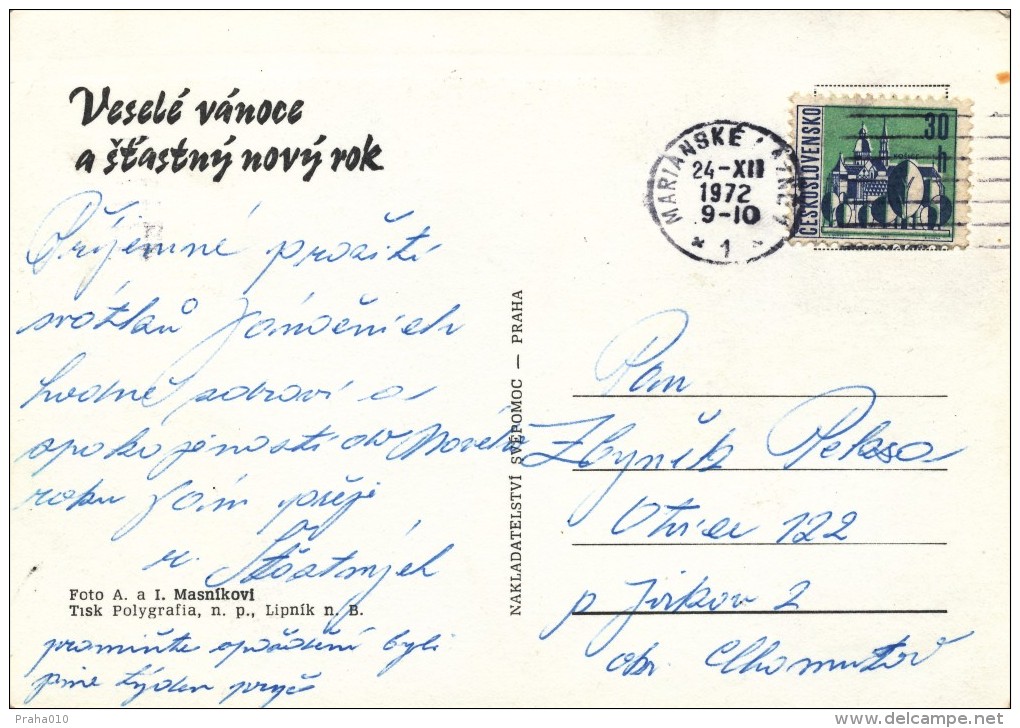 Veselé vánoce
a šťastný nový rok
Příjemné prožití
svátků Vánočních
hodně zdraví a
spokojenosti do Nového
roku Vám přeji
r. Šťastných
Foto A. a I. Masníkovi
Tisk Polygrafia, n. p., Lipník n. B.
promiňte opoždění byli
jsme týden pryč
NAKLADATELSTVÍ SVÉPOMOC — PRAHA
MARIÁNSKÉ LÁZNĚ 1
24-XII
1972
9-10
* 1 *
ČESKOSLOVENSKO
30
h
Pan
Zbyněk Peksa
Otvice 122
p Jirkov 2
okr. Chomutov
Praha010
www.delcampe.net